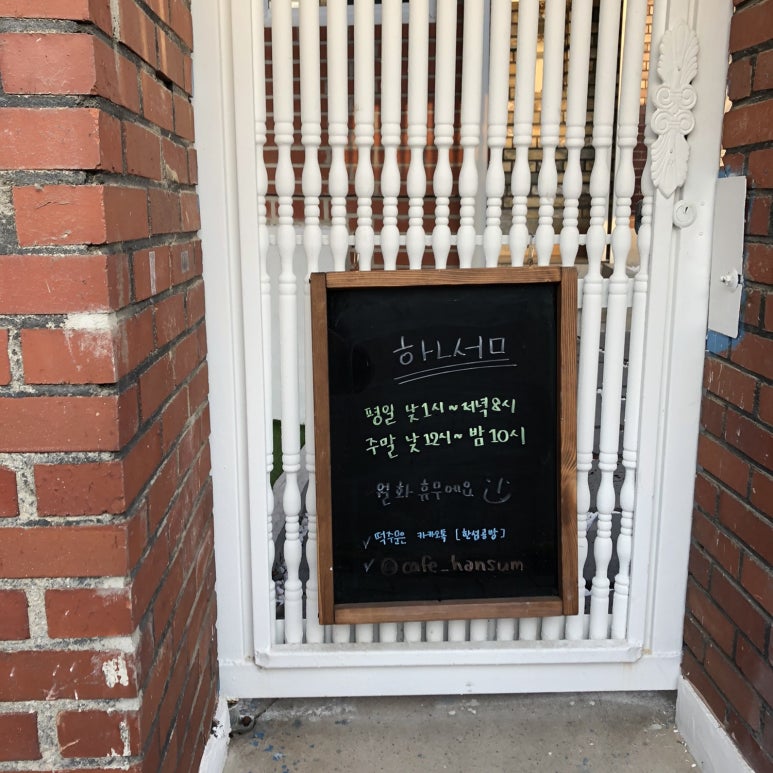 하ㄴ서ㅁ
평일 낮 1시 ~ 저녁 8시
주말 낮 12시 ~ 밤 10시
월화 휴무에요 :)
✓ 떡주문은 카카오톡 [한섬공방]
✓ @cafe_hansum